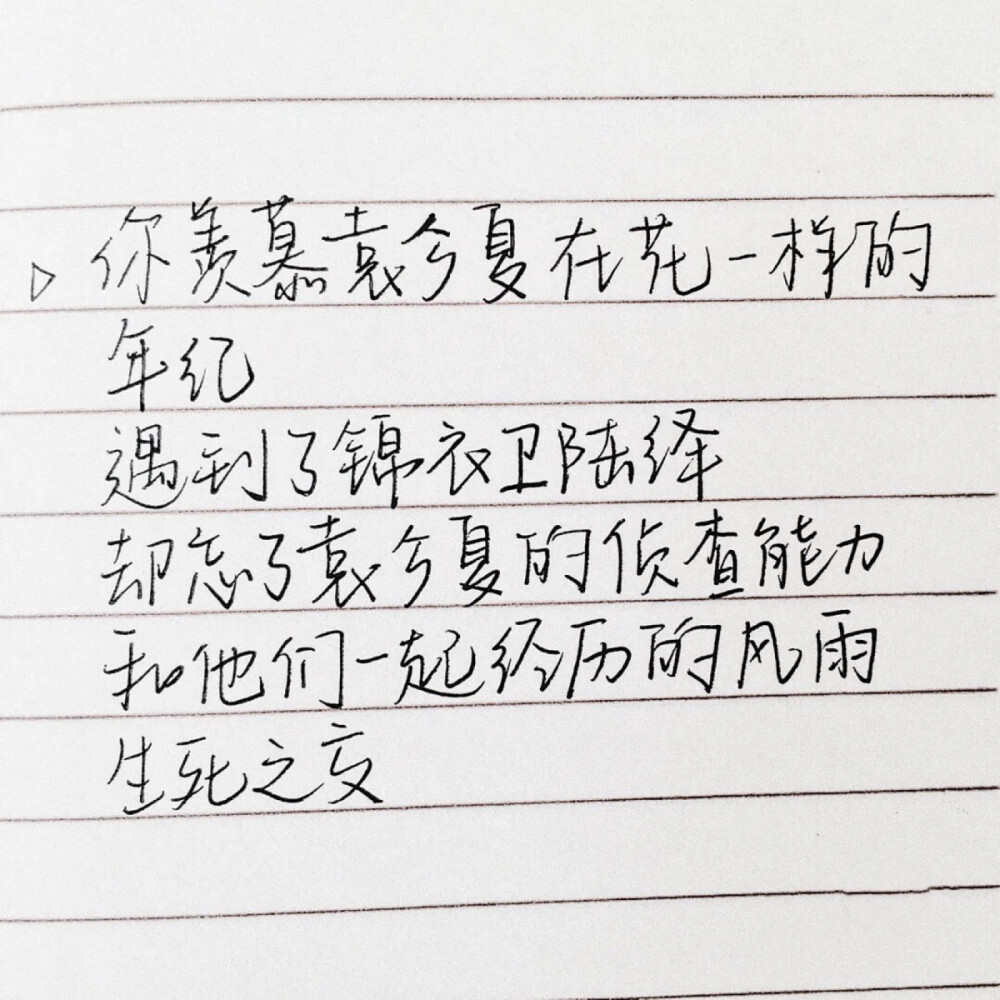 你羡慕袁今夏在花一样的
年纪
遇到了锦衣卫陆绎
却忘了袁今夏的侦查能力
和他们一起经历的风雨
生死之交